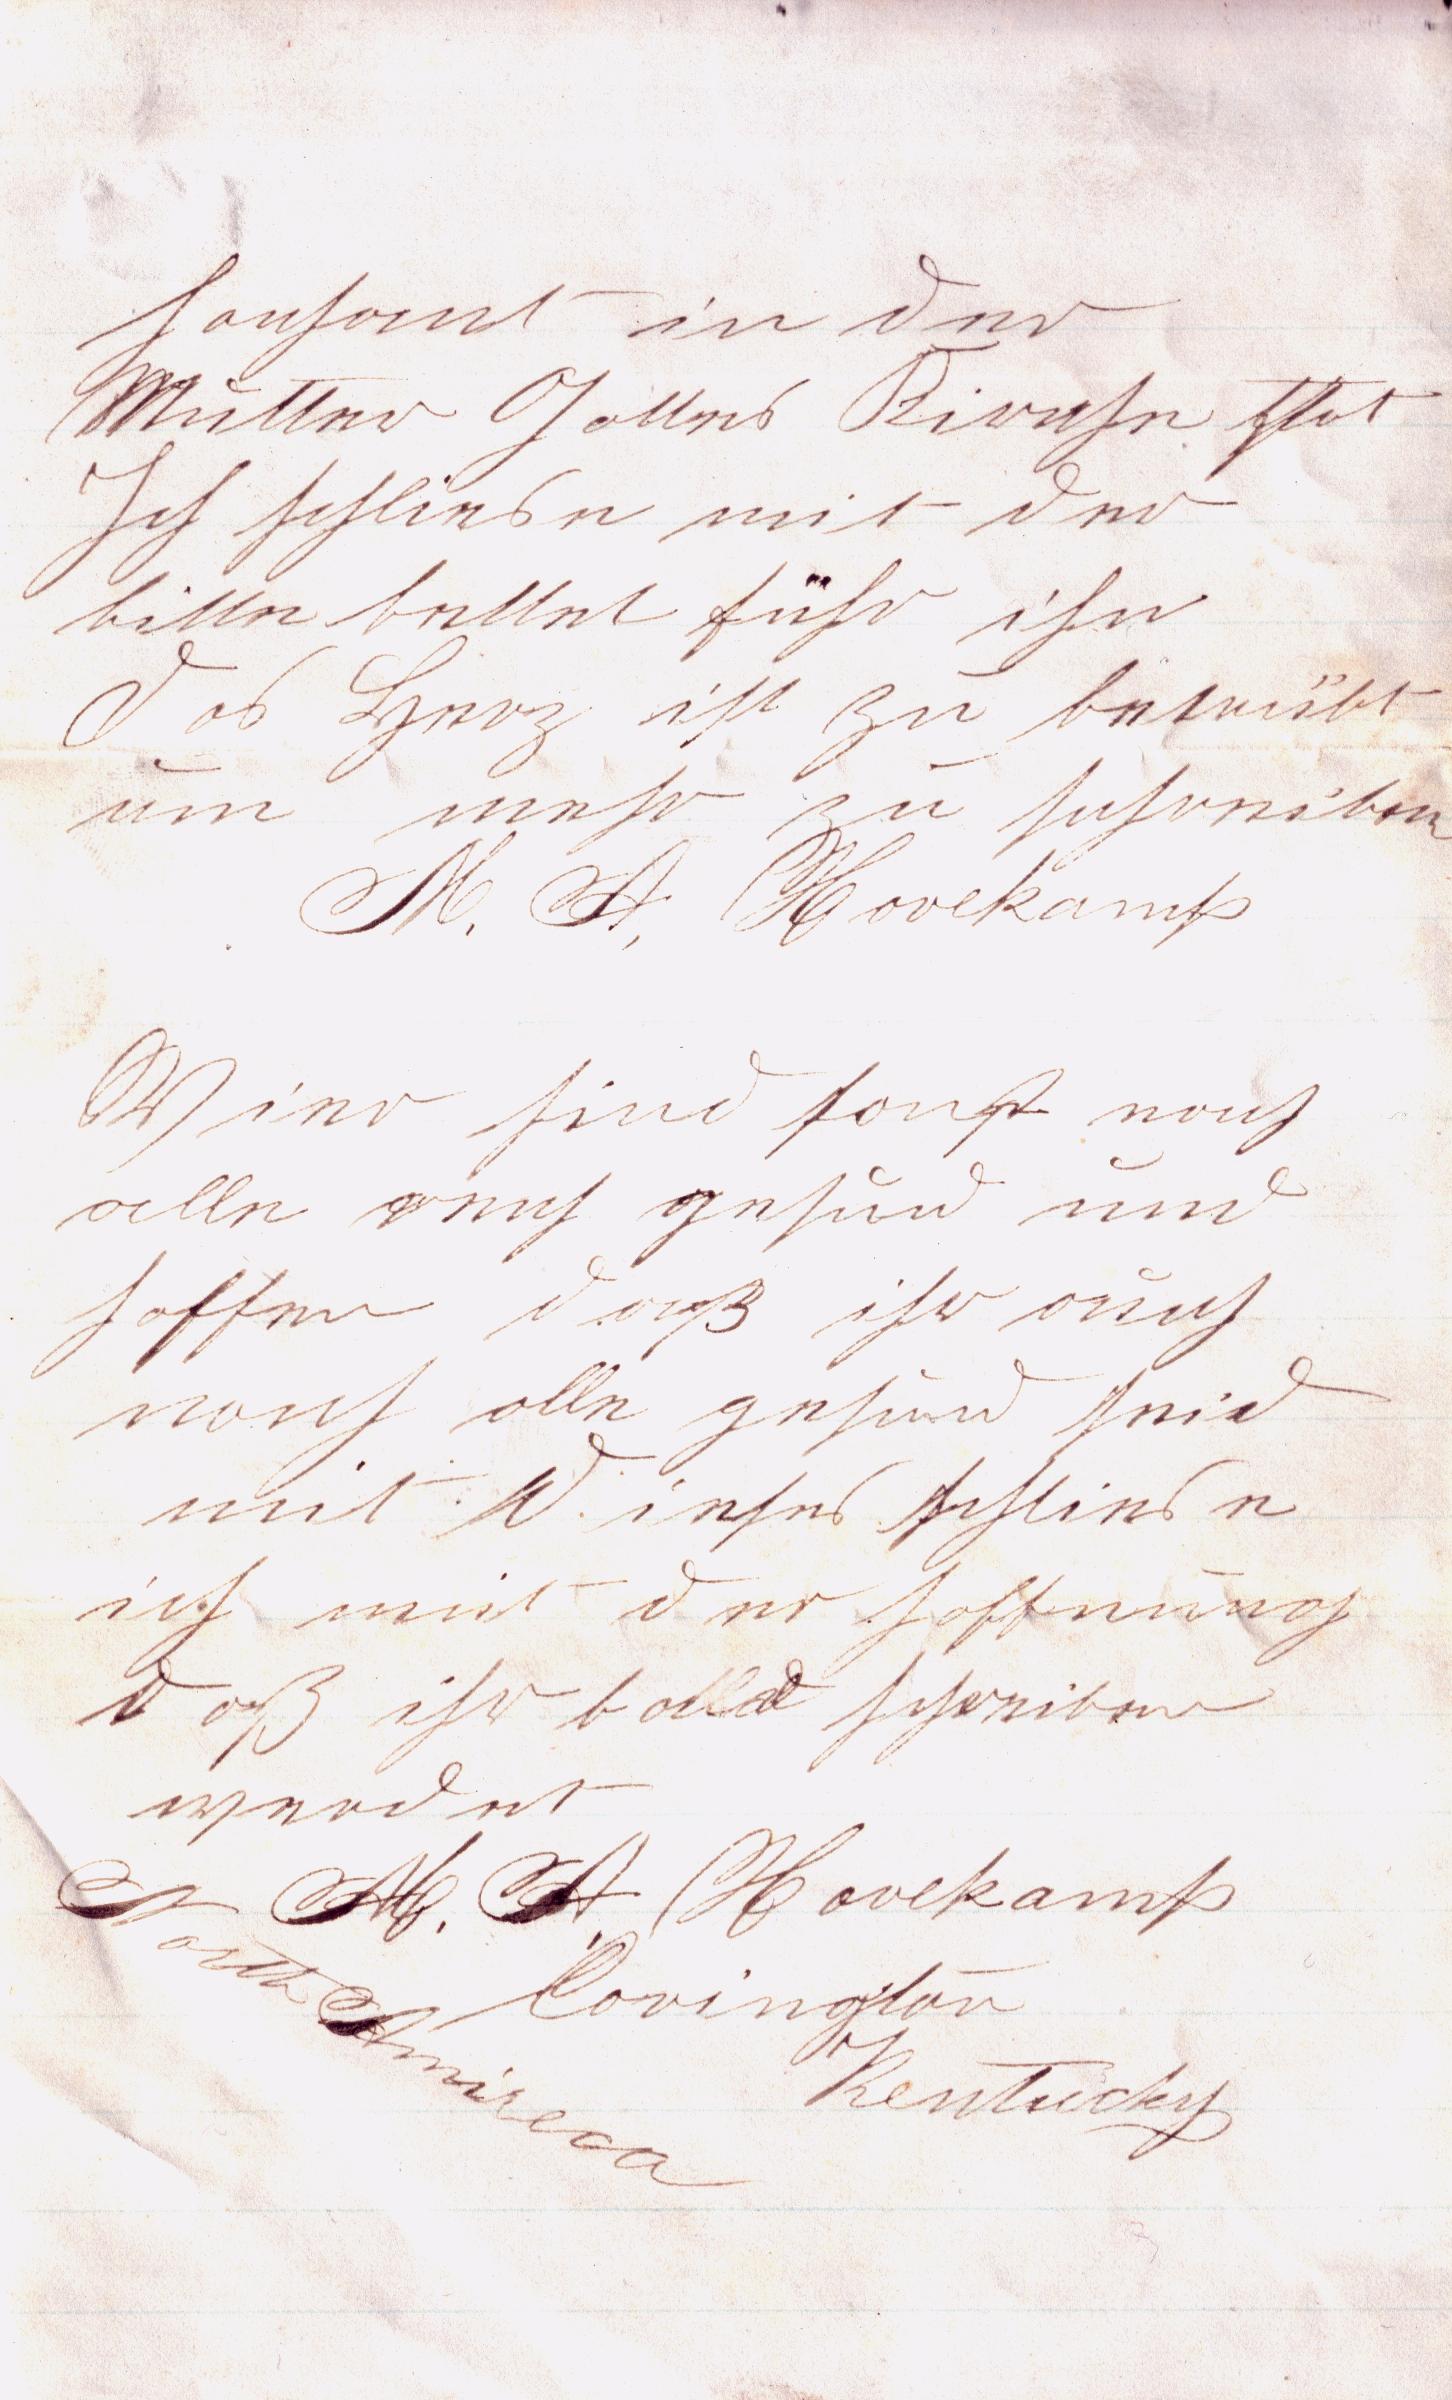 hochamt in der
Mutter Gottes Kirche stat
Ich schliese mit der
bitte bettet führ ihn
Das Herz ist zu betrübt
um mehr zu schreiben
M. A. Hovekamp
Wier sind sonst noch
alle rech gesund und
hoffen daß ihr auch
noch alle gesund seid
mit dieses schliese
ich mit der hoffnung
daß ihr balld schreiben
werdet
M. A. Hovekamp
Covington
Kentucky
North Amireca